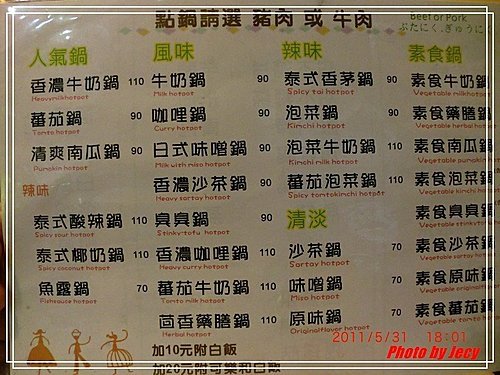 點鍋請選 豬肉 或 牛肉
Beef or Pork
ぶたにく.ぎゅうに
人氣鍋
香濃牛奶鍋 110
Heavymilkhotpot
蕃茄鍋 90
Tomto hotpot
清爽南瓜鍋 110
Pumpkin hotpot
辣味
泰式酸辣鍋 110
Spicy sour hotpot
泰式椰奶鍋 110
Spicy coconut hotpot
魚露鍋 70
Fishsauce hotpot
風味
牛奶鍋 90
Milk hotpot
咖哩鍋 90
Curry hotpot
日式味噌鍋 90
Milk with miso hotpot
香濃沙茶鍋 90
Heavy sartay hotpot
臭臭鍋 90
Stinky-tofu hotpot
香濃咖哩鍋 110
Heavy curry hotpot
蕃茄牛奶鍋 110
Tomato milk hotpot
茴香藥膳鍋 110
Herbal hotpot
加10元附白飯
加20元附可樂和白飯
辣味
泰式香茅鍋 90
Spicy tai hotpot
泡菜鍋 90
Kimchi hotpot
泡菜牛奶鍋 110
Kimchi milk hotpot
蕃茄泡菜鍋 110
Spicy tomtokimchi hotpot
清淡
沙茶鍋 70
Sartay hotpot
味噌鍋 70
Miso hotpot
原味鍋 70
Originalflavor hotpot
素食鍋
素食牛奶鍋
Vegetable milkhotpot
素食藥膳鍋
Vegetable herbal hotpot
素食南瓜鍋
Vegetable pumkin hotpot
素食泡菜鍋
Vegetable kimchi hotpot
素食臭臭鍋
Vegetable stinky
素食沙茶鍋
Vegetable sartay hotpot
素食原味鍋
Vegetable original
素食蕃茄鍋
2011/5/31 18:01
Photo by Jecy